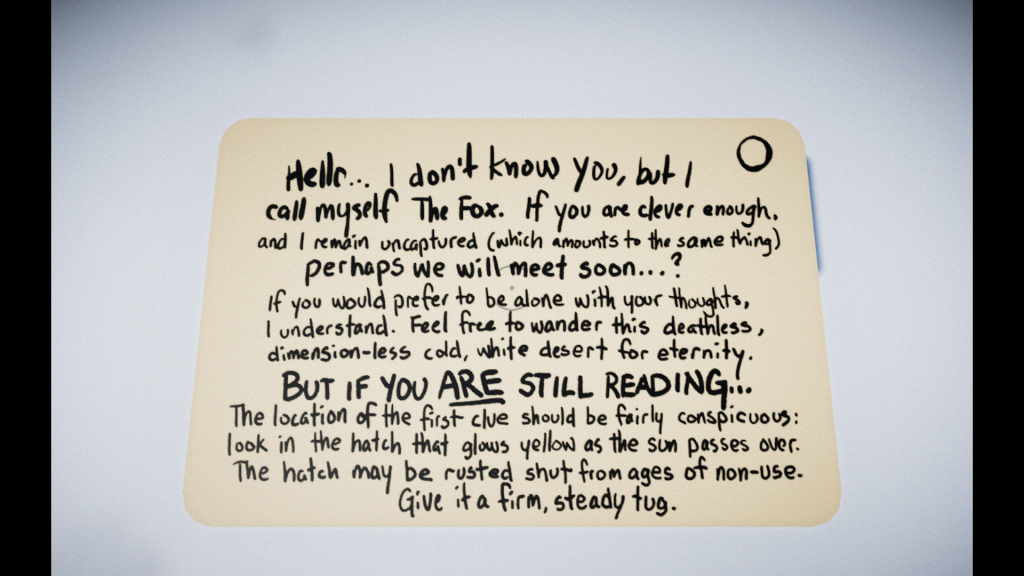 Hello... I don't know you, but I
call myself The Fox. If you are clever enough,
and I remain uncaptured (which amounts to the same thing)
perhaps we will meet soon...?
If you would prefer to be alone with your thoughts,
I understand. Feel free to wander this deathless,
dimension-less cold, white desert for eternity.
BUT IF YOU ARE STILL READING...
The location of the first clue should be fairly conspicuous:
look in the hatch that glows yellow as the sun passes over.
The hatch may be rusted shut from ages of non-use.
Give it a firm, steady tug.